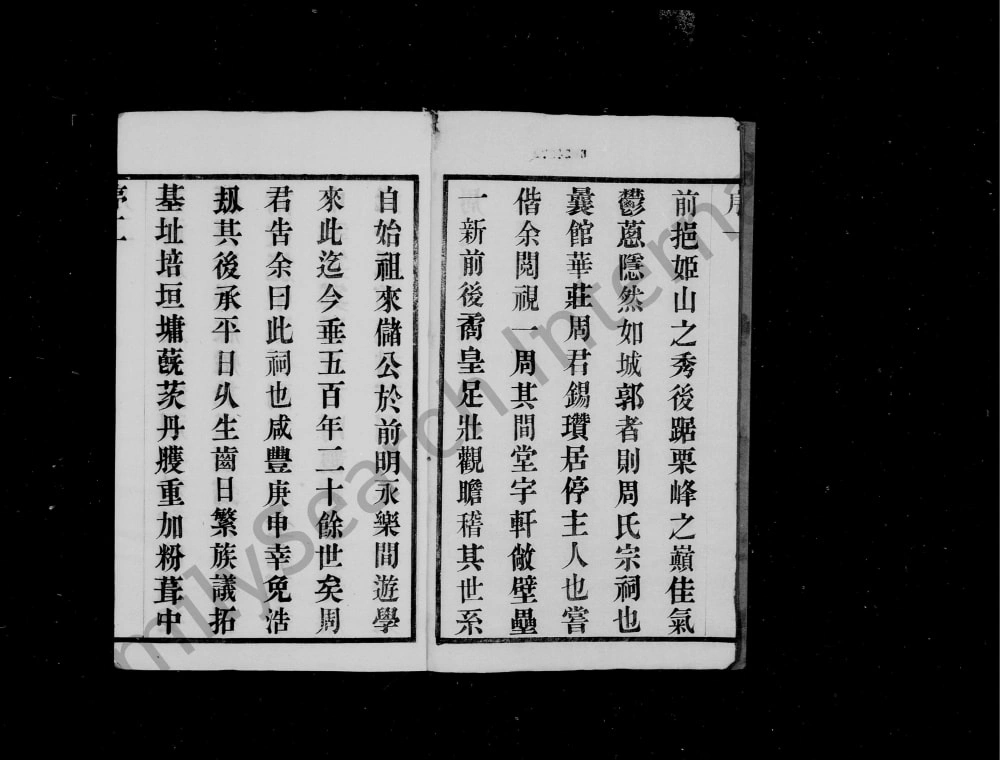 序 一
前挹姬山之秀後踞栗峰之巔佳氣
鬱蔥隱然如城郭者則周氏宗祠也
曩館華莊周君錫瓚居停主人也嘗
偕余閱視一周其間堂宇軒敞壁壘
一新前後矞皇足壯觀瞻稽其世系
自始祖來儲公於前明永樂間遊學
來此迄今垂五百年二十餘世矣周
君告余曰此祠也咸豐庚申幸免浩
刼其後承平日久生齒日繁族議拓
基址培垣墉蔇茨丹雘重加粉葺中
序 二
milysearch Intern